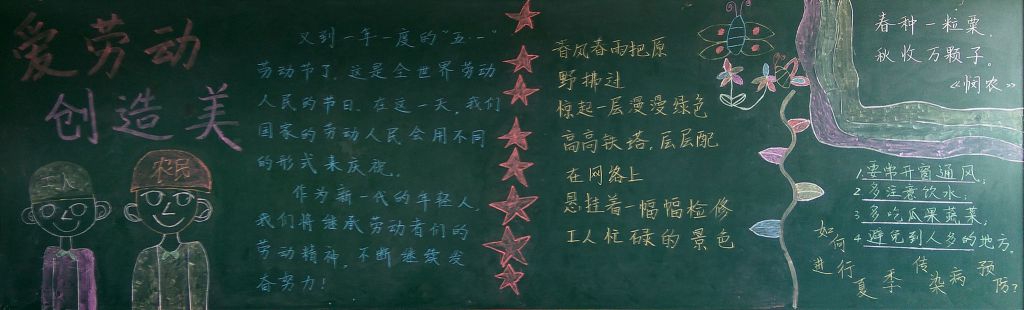 爱劳动
创造美
工人
农民
又到一年一度的“五·一”
劳动节了，这是全世界劳动
人民的节日。在这一天，我们
国家的劳动人民会用不同
的形式来庆祝。
作为新一代的年轻人，
我们将继承劳动者们的
劳动精神，不断继续发
奋努力！
春风春雨把原
野拂过
惊起一层漫漫绿色
高高铁塔，层层配
在网络上
悬挂着一幅幅检修
工人忙碌的景色
春种一粒粟，
秋收万颗子。
《悯农》
1.要常开窗通风；
2.多注意饮水；
3.多吃瓜果蔬菜；
4.避免到人多的地方。
如何进行夏季传染病预防？